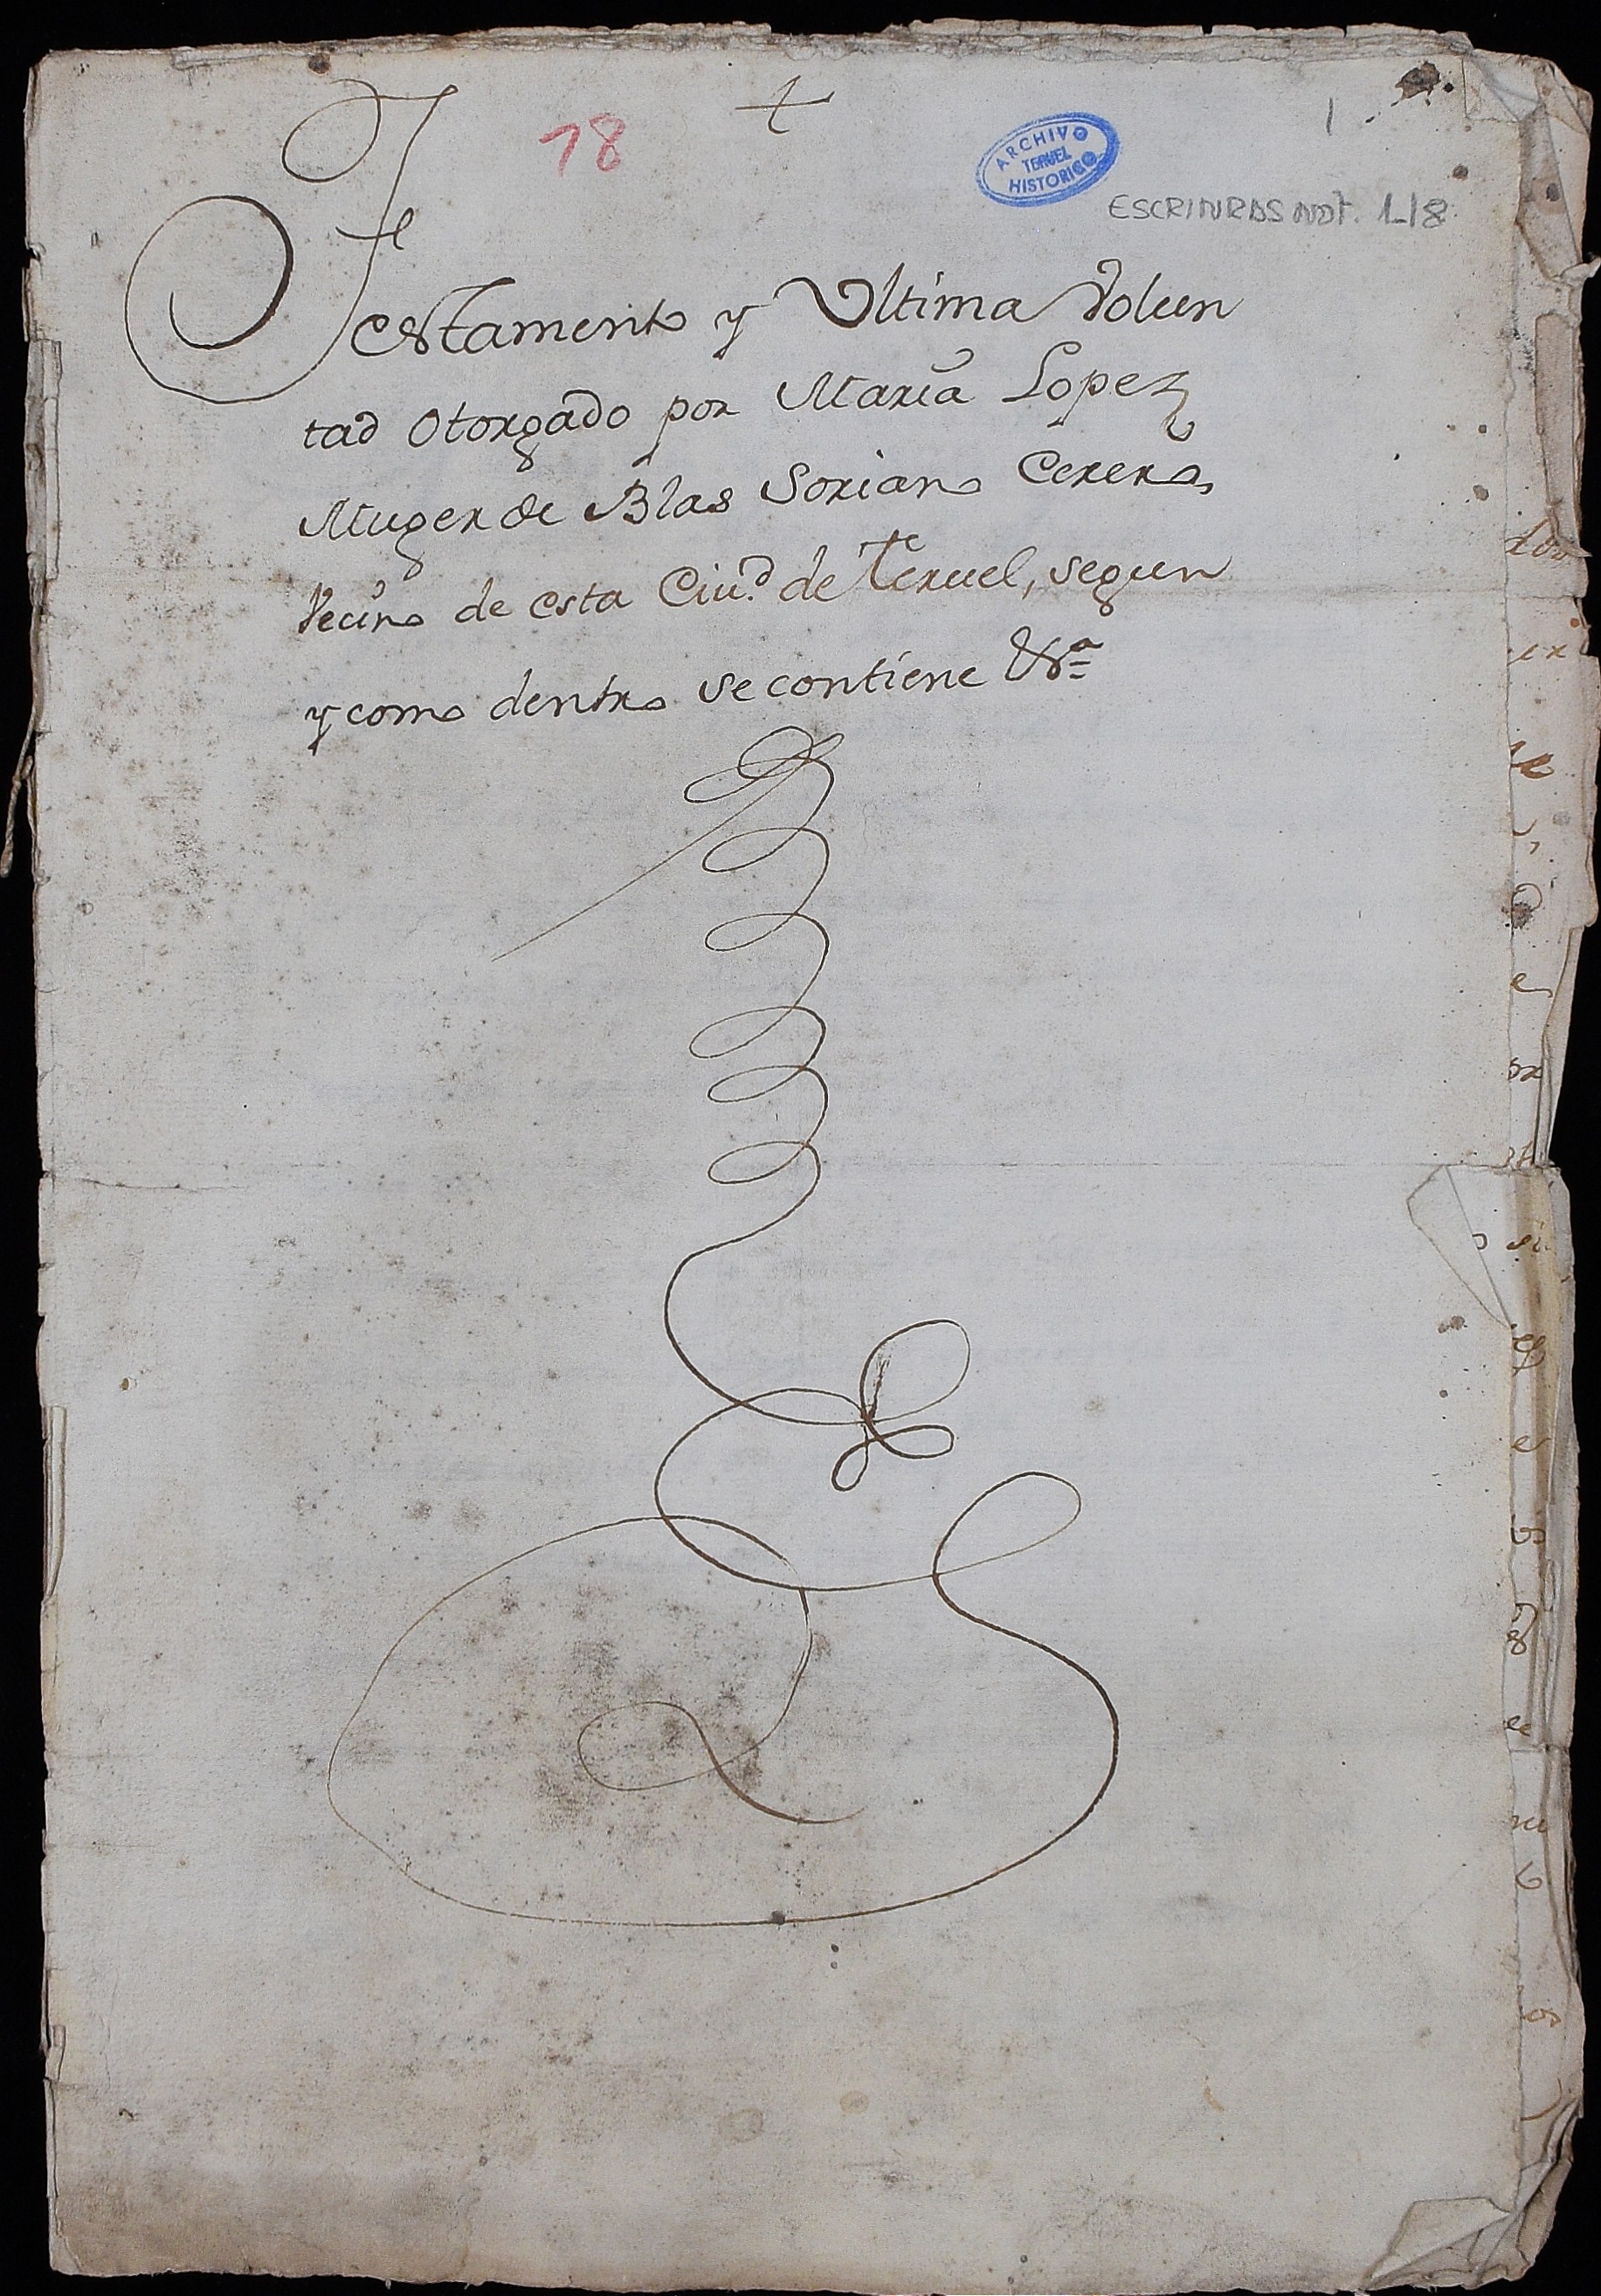 +
18
1
ARCHIVO
TERUEL
HISTORICO
ESCRITURAS NOT. 1-18
Testamento y Ultima Volun
tad Otorgado por Maria Lopez
Muger de Blas Soriano Cerero,
Vecino de esta Ciu.d de Teruel, segun
y como dentro se contiene &ra